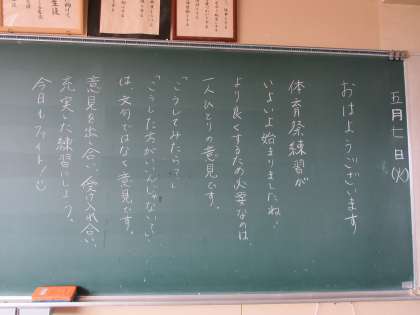 五月七日(火)
おはようございます
体育祭練習が
いよいよ始まりましたね。
より良くするため必要なのは、
一人ひとりの意見です。
「こうしてみたら?」
「こうした方がいいんじゃない?」
は、文句ではなく意見です。
意見を出し合い、受け入れ合い、
充実した練習にしよう。
今日もファイト!